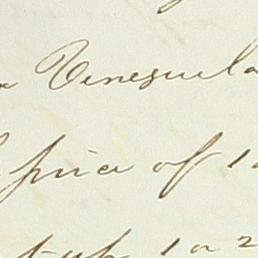 Venezuela
price of 1
1 a 2